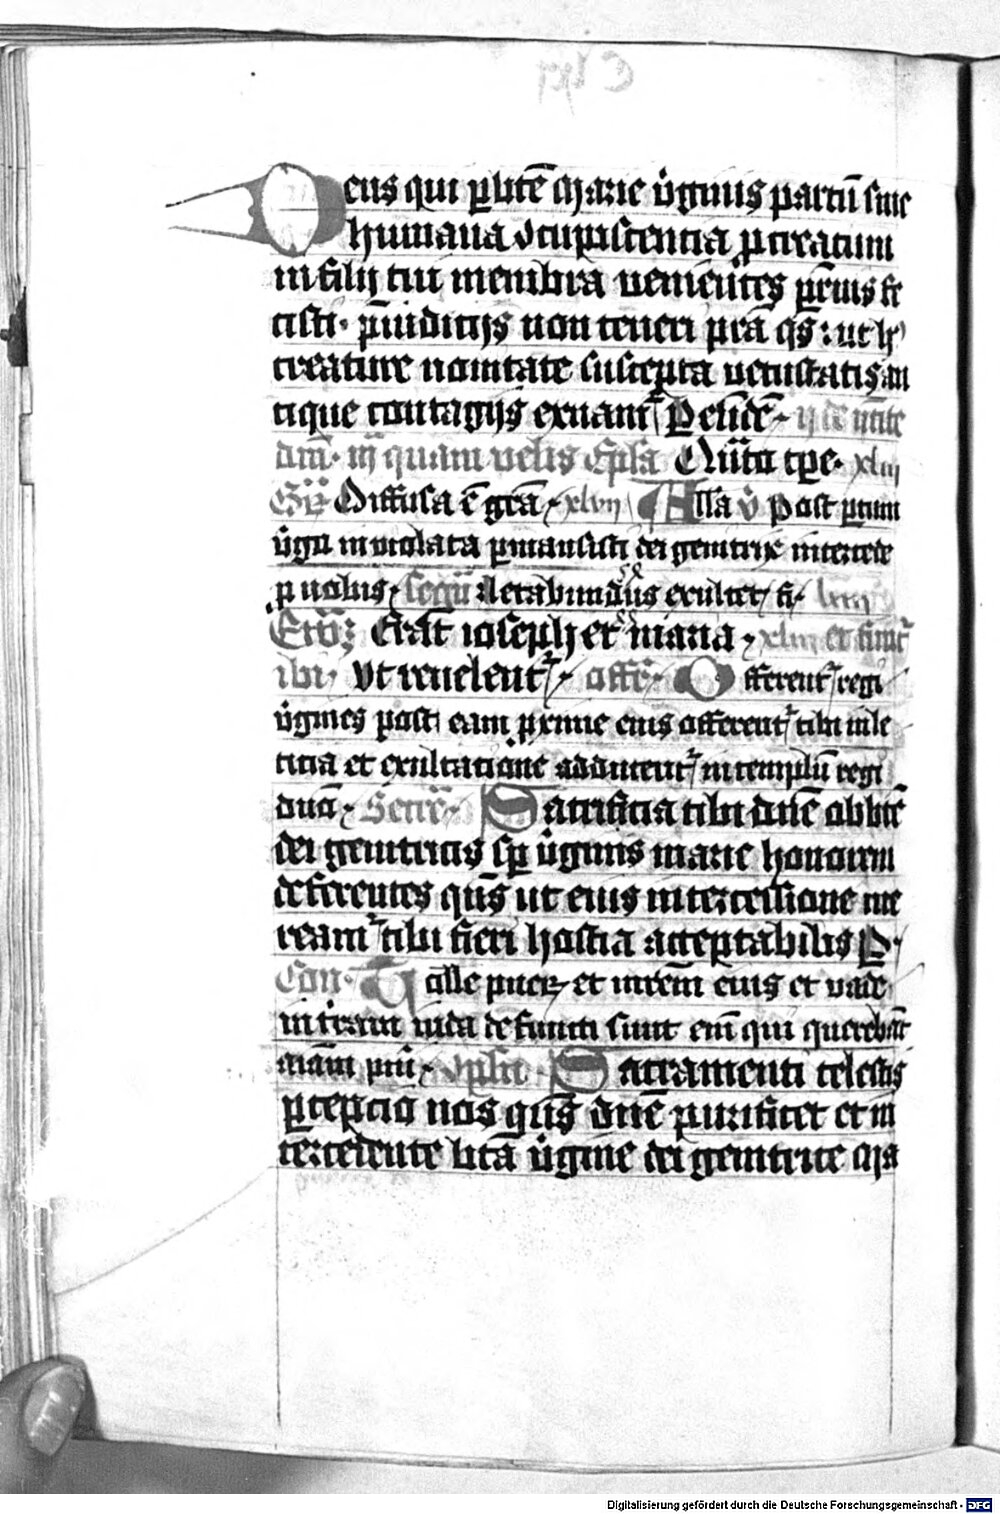 Deus qui p btē Marie v̓ginis partū sine
humana ↄcupiscentia ꝓcreatum
in filij tui membra venientes p̄eius fe
cisti · p̄iudicijs non teneri p̄sta q̄s : ut hͨ
creature nouitate suscepta vetustatis an
tique contagijs exuamᷣ P eūdē · 
dām · in quam velis Ep̄la Multo tp̄e · xliij
Gͬ Diffusa ē grā · xlvij Alla v̓ Post ptum
v̓go inuiolata ꝑmansisti dei genitrix intercede
ꝓ nobis · Sequē Letabundus exultet fi ·
Ewͫ Erāt ioseph et maria · xliij et finitᷣ
ibi · Vt reuelentᷣ · offrͫ · Offerentᷣ regi
v̓gines post eam ꝓxime eius offerentᷣ tibi in le
ticia et exultatione adducentᷣ in templū regi
dn̄o · Secrͤ · Sacrificia tibi dn̄e ob btē
dei genitricis sp̄ v̓ginis marie honorem
deferentes qūs ut eius intercessione me
reamᷣ tibi fieri hostia acceptabilis P ·
Con · Tolle pueꝝ et matrem eius et vade
in terram iuda defuncti sunt eīm qui querebāt
aīam puī · 9plēt · Sacramenti celestis
ꝑcepcio nos qūs dn̄e purificet et in
tercedente btā v̓gine dei genitrice Mᷓa
Digitalisierung gefördert durch die Deutsche Forschungsgemeinschaft - DFG